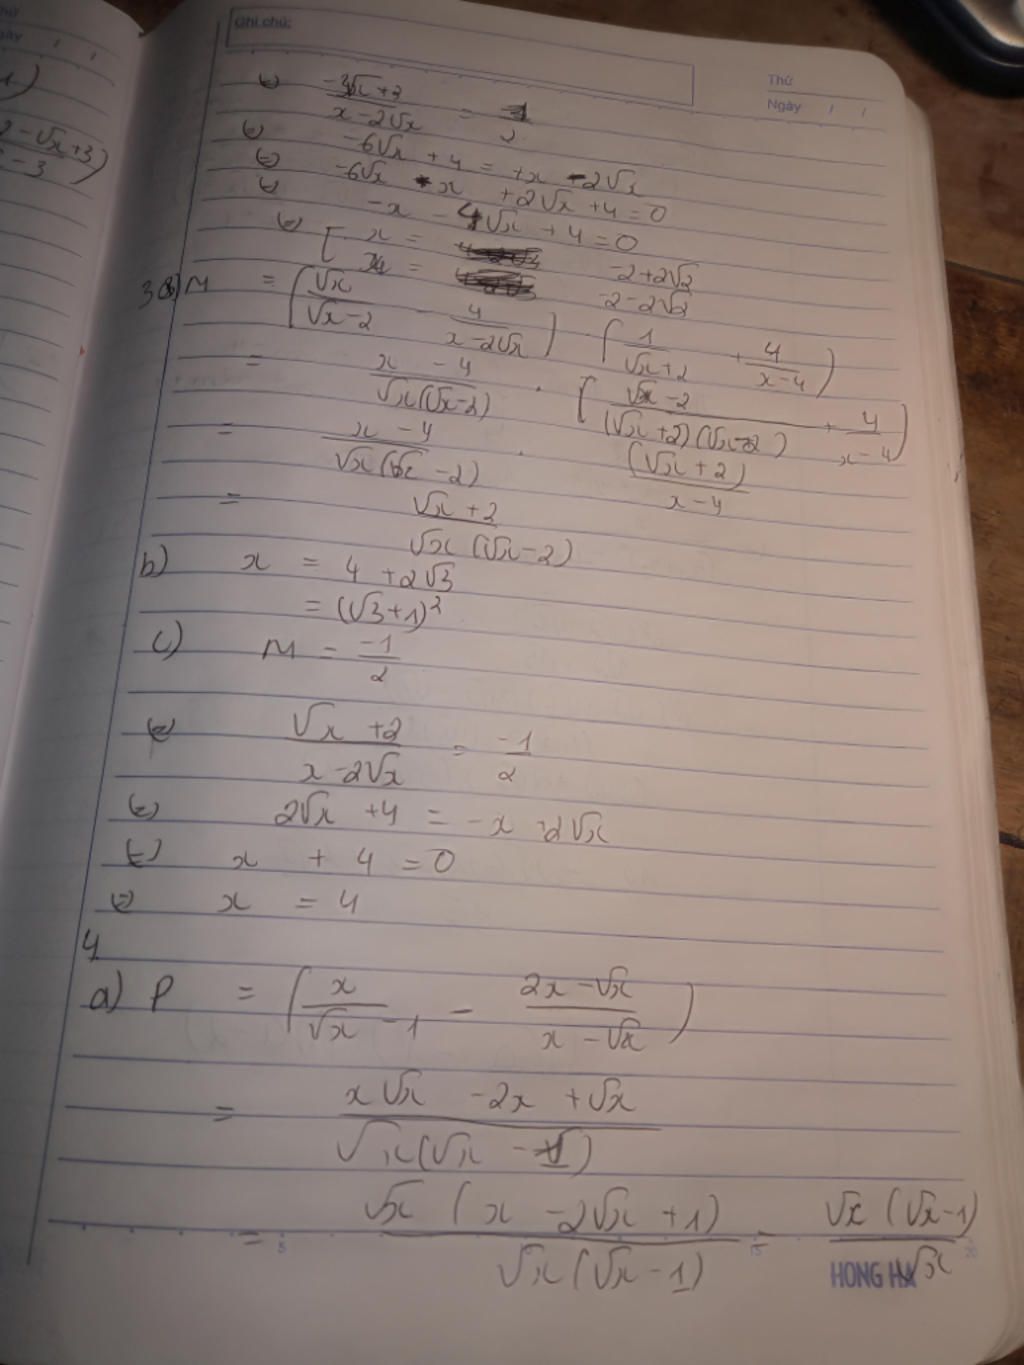 Ghi chú:
Thứ
Ngày / /
⇔ (-3√x+2)/(x-2√x) =
⇔ -6√x + 4 = +x -2√x
⇔ -6√x - x +2√x +4 = 0
⇔ -x - 4√x + 4 = 0
⇔ [ x = -2+2√2
x = -2-2√2
3a) M = (√x/(√x-2) - 4/(x-2√x)) . (1/(√x+2) + 4/(x-4))
= (x-4)/(√x(√x-2)) . [(√x-2)/((√x+2)(√x-2)) + 4/(x-4))
= (x-4)/(√x(√x-2)) . (√x+2)/(x-4)
= (√x+2)/(√x(√x-2))
b) x = 4 +2√3
= (√3+1)²
c) M = -1/2
⇔ (√x +2)/(x-2√x) = -1/2
⇔ 2√x +4 = -x +2√x
⇔ x + 4 = 0
⇔ x = 4
4
a) P = (x/(√x-1) - (2x-√x)/(x-√x))
= (x√x -2x +√x)/(√x(√x-1))
= (√x(x-2√x+1))/(√x(√x-1)) = (√x(√x-1))/√x
5 15 20
HONG HA